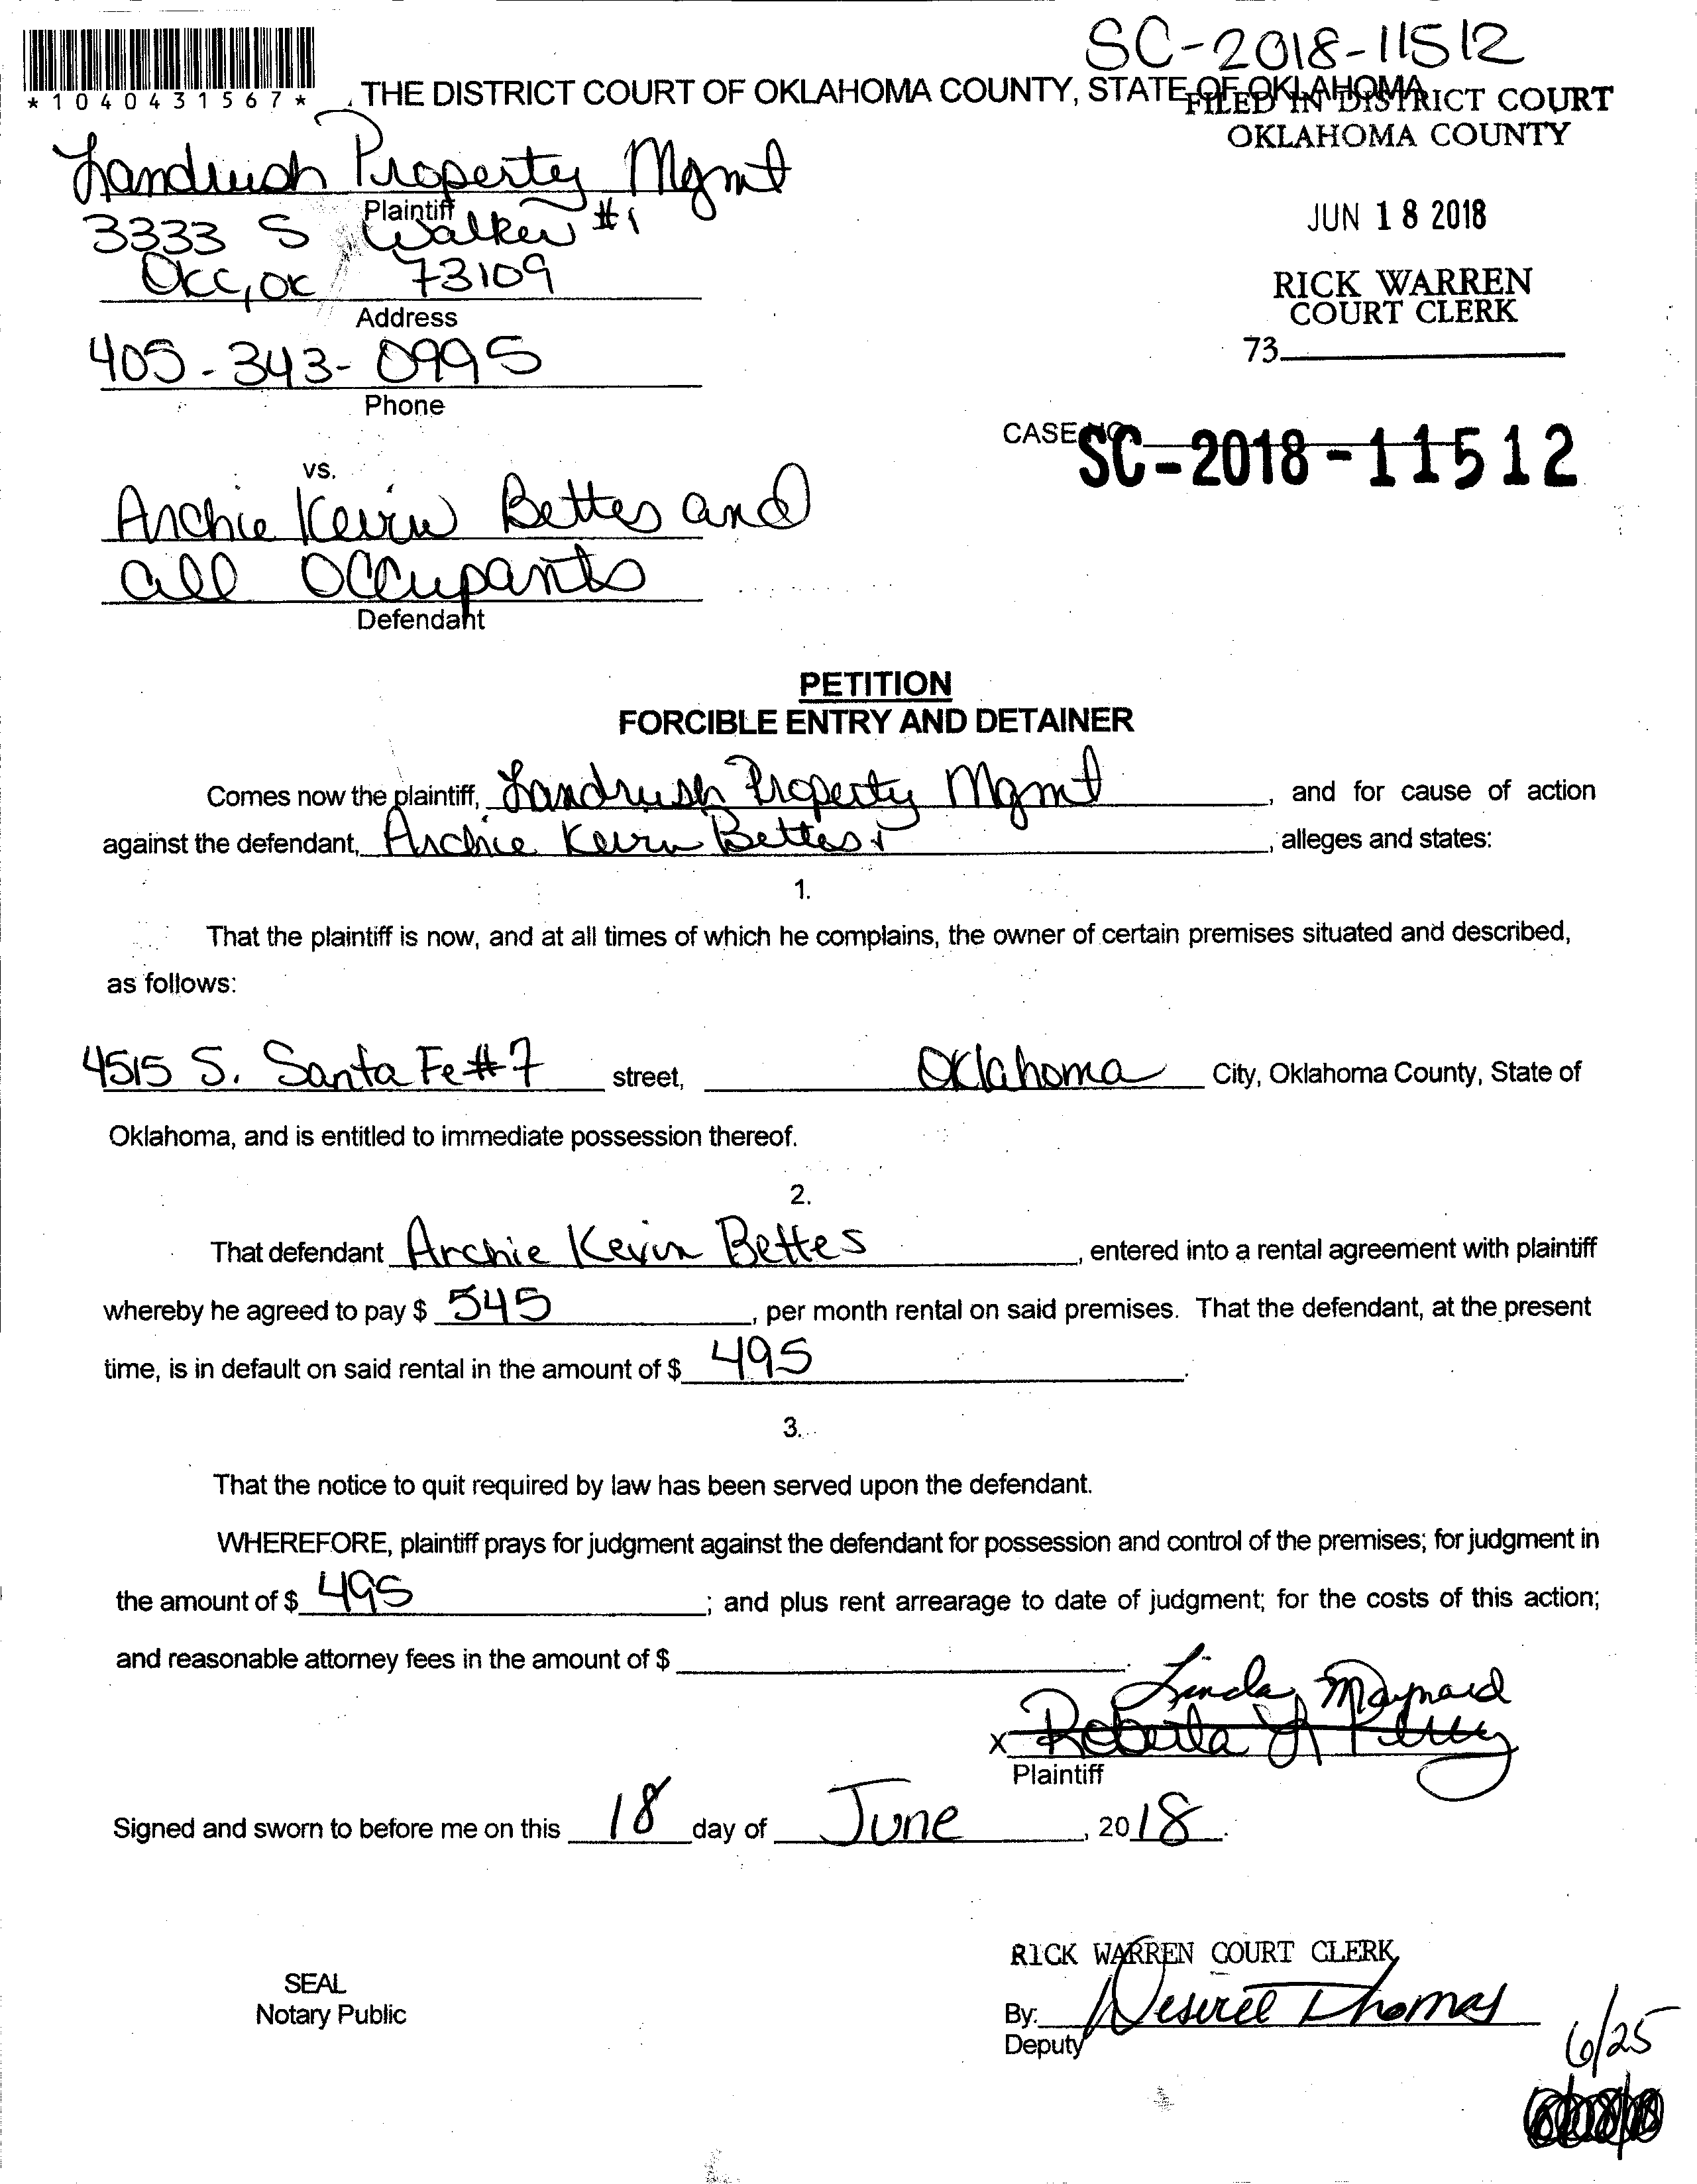 SC-2018-11512
*1040431567*
THE DISTRICT COURT OF OKLAHOMA COUNTY, STATE OF OKLAHOMA
FILED IN DISTRICT COURT
OKLAHOMA COUNTY
Landrush Property Mgmt
Plaintiff
3333 S Walker #1
OKC, OK 73109
Address
405-343-0995
Phone
JUN 18 2018
RICK WARREN
COURT CLERK
73
CASE NO.
SC-2018-11512
vs.
Archie Kevin Bettes and
all Occupants
Defendant
PETITION
FORCIBLE ENTRY AND DETAINER
Comes now the plaintiff, Landrush Property Mgmt, and for cause of action
against the defendant, Archie Kevin Bettes, alleges and states:
1.
That the plaintiff is now, and at all times of which he complains, the owner of certain premises situated and described,
as follows:
4515 S. Santa Fe #7 street, Oklahoma City, Oklahoma County, State of
Oklahoma, and is entitled to immediate possession thereof.
2.
That defendant Archie Kevin Bettes, entered into a rental agreement with plaintiff
whereby he agreed to pay $ 545, per month rental on said premises. That the defendant, at the present
time, is in default on said rental in the amount of $ 495.
3.
That the notice to quit required by law has been served upon the defendant.
WHEREFORE, plaintiff prays for judgment against the defendant for possession and control of the premises; for judgment in
the amount of $ 495; and plus rent arrearage to date of judgment; for the costs of this action;
and reasonable attorney fees in the amount of $ .
Linda Maynard
x Roberta L Perry
Plaintiff
Signed and sworn to before me on this 18 day of June, 2018.
RICK WARREN COURT CLERK
SEAL
Notary Public
By: Desiree Thomas
Deputy
6/25